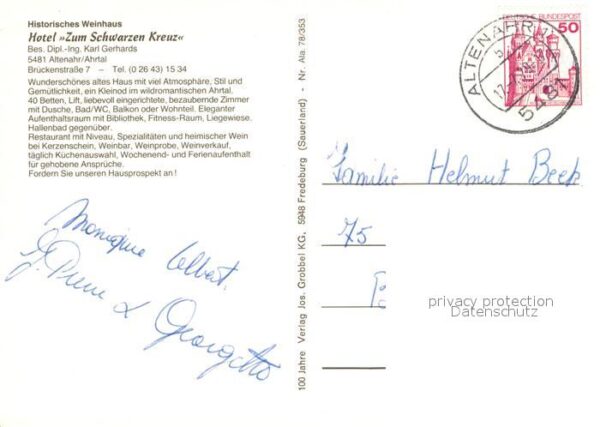 Historisches Weinhaus
Hotel »Zum Schwarzen Kreuz«
Bes. Dipl.-Ing. Karl Gerhards
5481 Altenahr/Ahrtal
Brückenstraße 7 – Tel. (0 26 43) 15 34
Wunderschönes altes Haus mit viel Atmosphäre, Stil und
Gemütlichkeit, ein Kleinod im wildromantischen Ahrtal.
40 Betten, Lift, liebevoll eingerichtete, bezaubernde Zimmer
mit Dusche, Bad/WC, Balkon oder Wohnteil. Eleganter
Aufenthaltsraum mit Bibliothek, Fitness-Raum, Liegewiese.
Hallenbad gegenüber.
Restaurant mit Niveau, Spezialitäten und heimischer Wein
bei Kerzenschein, Weinbar, Weinprobe, Weinverkauf,
täglich Küchenauswahl, Wochenend- und Ferienaufenthalt
für gehobene Ansprüche.
Fordern Sie unseren Hausprospekt an!
Monique Albert.
& Georgette
100 Jahre Verlag Jos. Grobbel KG, 5948 Fredeburg (Sauerland) - Nr. Ala. 78/353
DEUTSCHE BUNDESPOST
50
ALTENAHR
5481
Familie Helmut Beek
75
privacy protection
Datenschutz